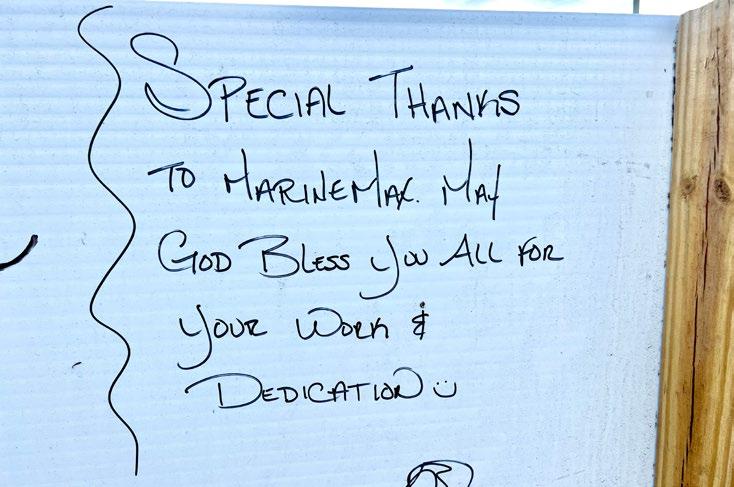 Special Thanks
to MarineMax. May
God Bless you All for
your Work &
Dedication